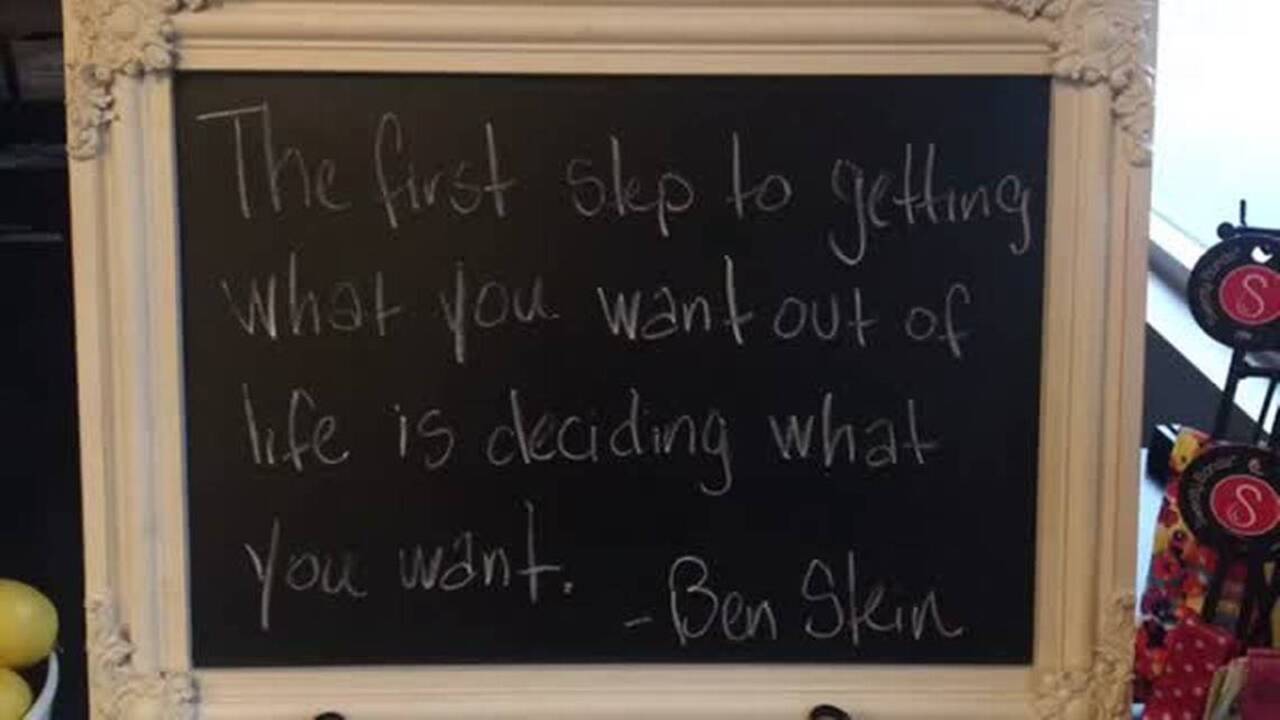 The first step to getting
what you want out of
life is deciding what
you want.
- Ben Stein
S
S